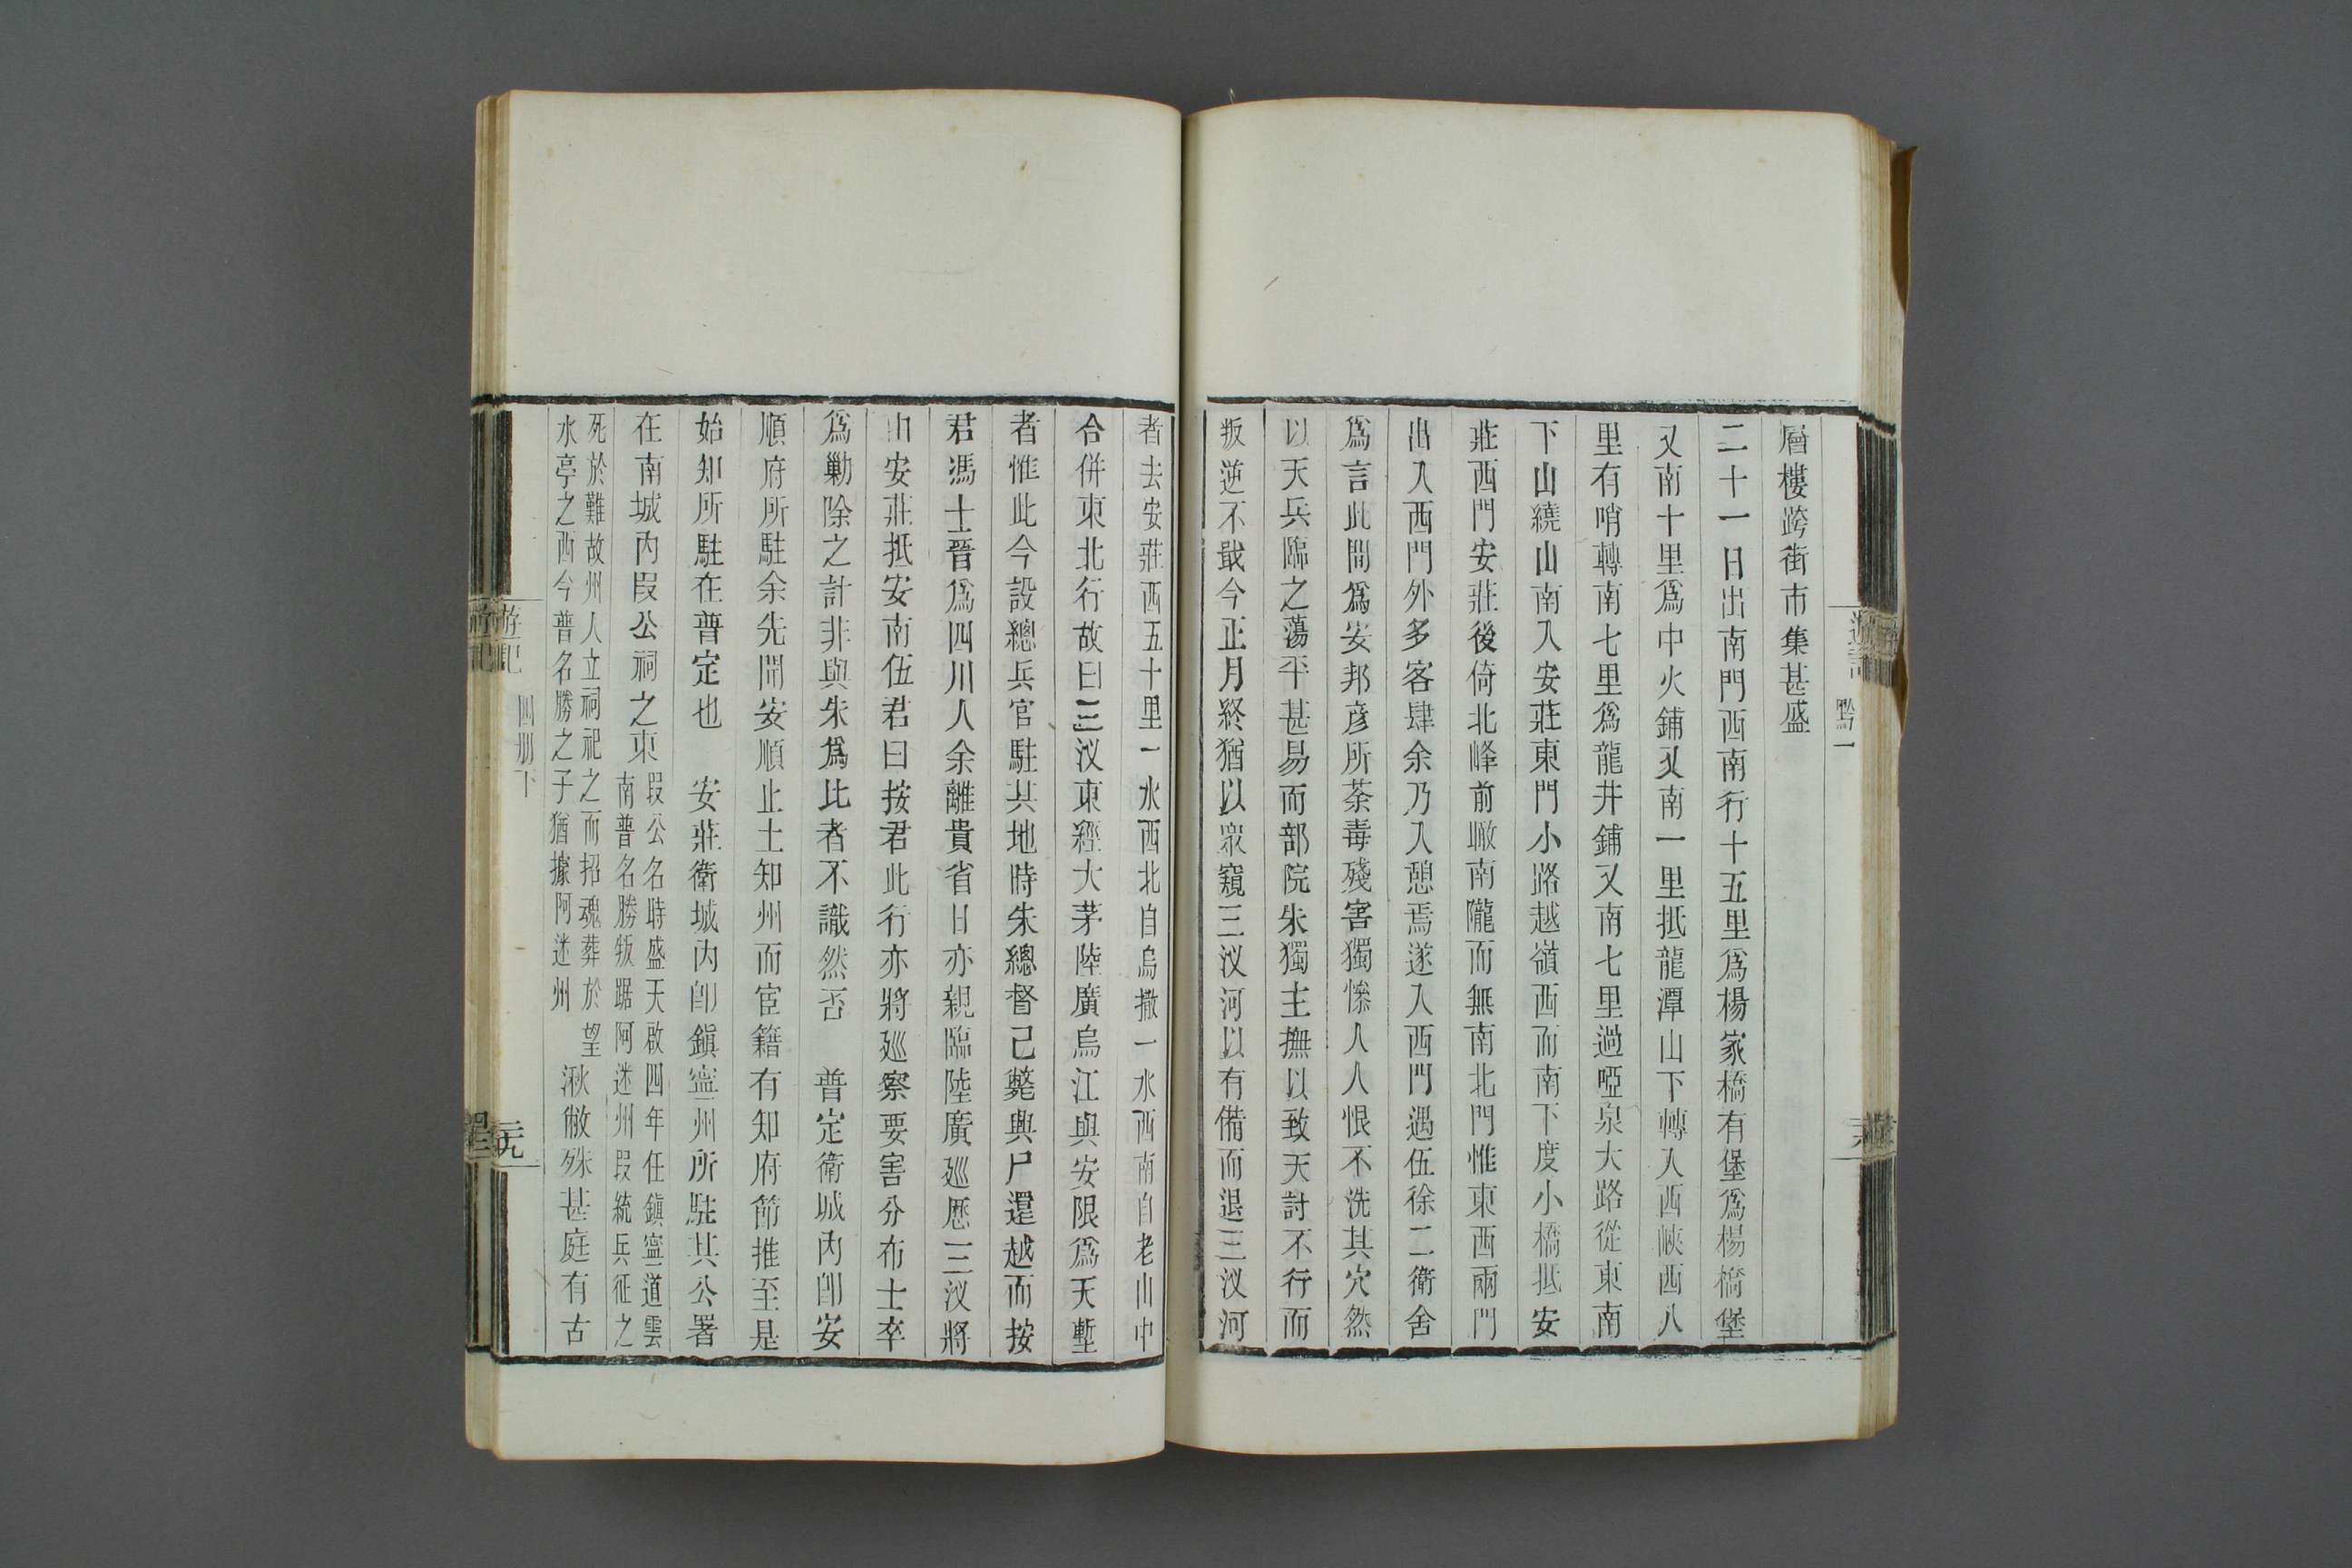 層樓跨街市集甚盛
二十一日出南門西南行十五里爲楊家橋有堡爲楊橋堡
又南十里爲中火鋪又南一里抵龍潭山下轉入西峽西八
里有哨轉南七里爲龍井鋪又南七里過啞泉大路從東南
下山繞山南入安莊東門小路越嶺西而南下度小橋抵安
莊西門安莊後倚北峰前瞰南隴而無南北門惟東西兩門
出入西門外多客肆余乃入憩焉遂入西門遇伍徐二衛舍
爲言此間爲安邦彥所荼毒殘害獨慘人人恨不洗其穴然
以天兵臨之蕩平甚易而部院朱獨主撫以致天討不行而
叛逆不戢今正月終猶以眾窺三汊河以有備而退三汊河
者去安莊西五十里一水西北自烏撒一水西南自老山中
合併東北行故曰三汊東經大茅陸廣烏江與安限爲天塹
者惟此今設總兵官駐其地時朱總督已斃輿尸還越而按
君馮士晉爲四川人余離貴省日亦親臨陸廣廵歷三汊將
由安莊抵安南伍君曰按君此行亦將廵察要害分布士卒
爲勦除之計非與朱爲比者不識然否　普定衛城內卽安
順府所駐余先聞安順止土知州而宦籍有知府節推至是
始知所駐在普定也　安莊衛城內卽鎭寧州所駐其公署
在南城內叚公祠之東
叚公名時盛天啟四年任鎭寧道雲
南普名勝叛踞阿迷州叚統兵征之
死於難故州人立祠祀之而招魂葬於望
水亭之西今普名勝之子猶據阿迷州
湫敝殊甚庭有古
黔一
游記
四册下